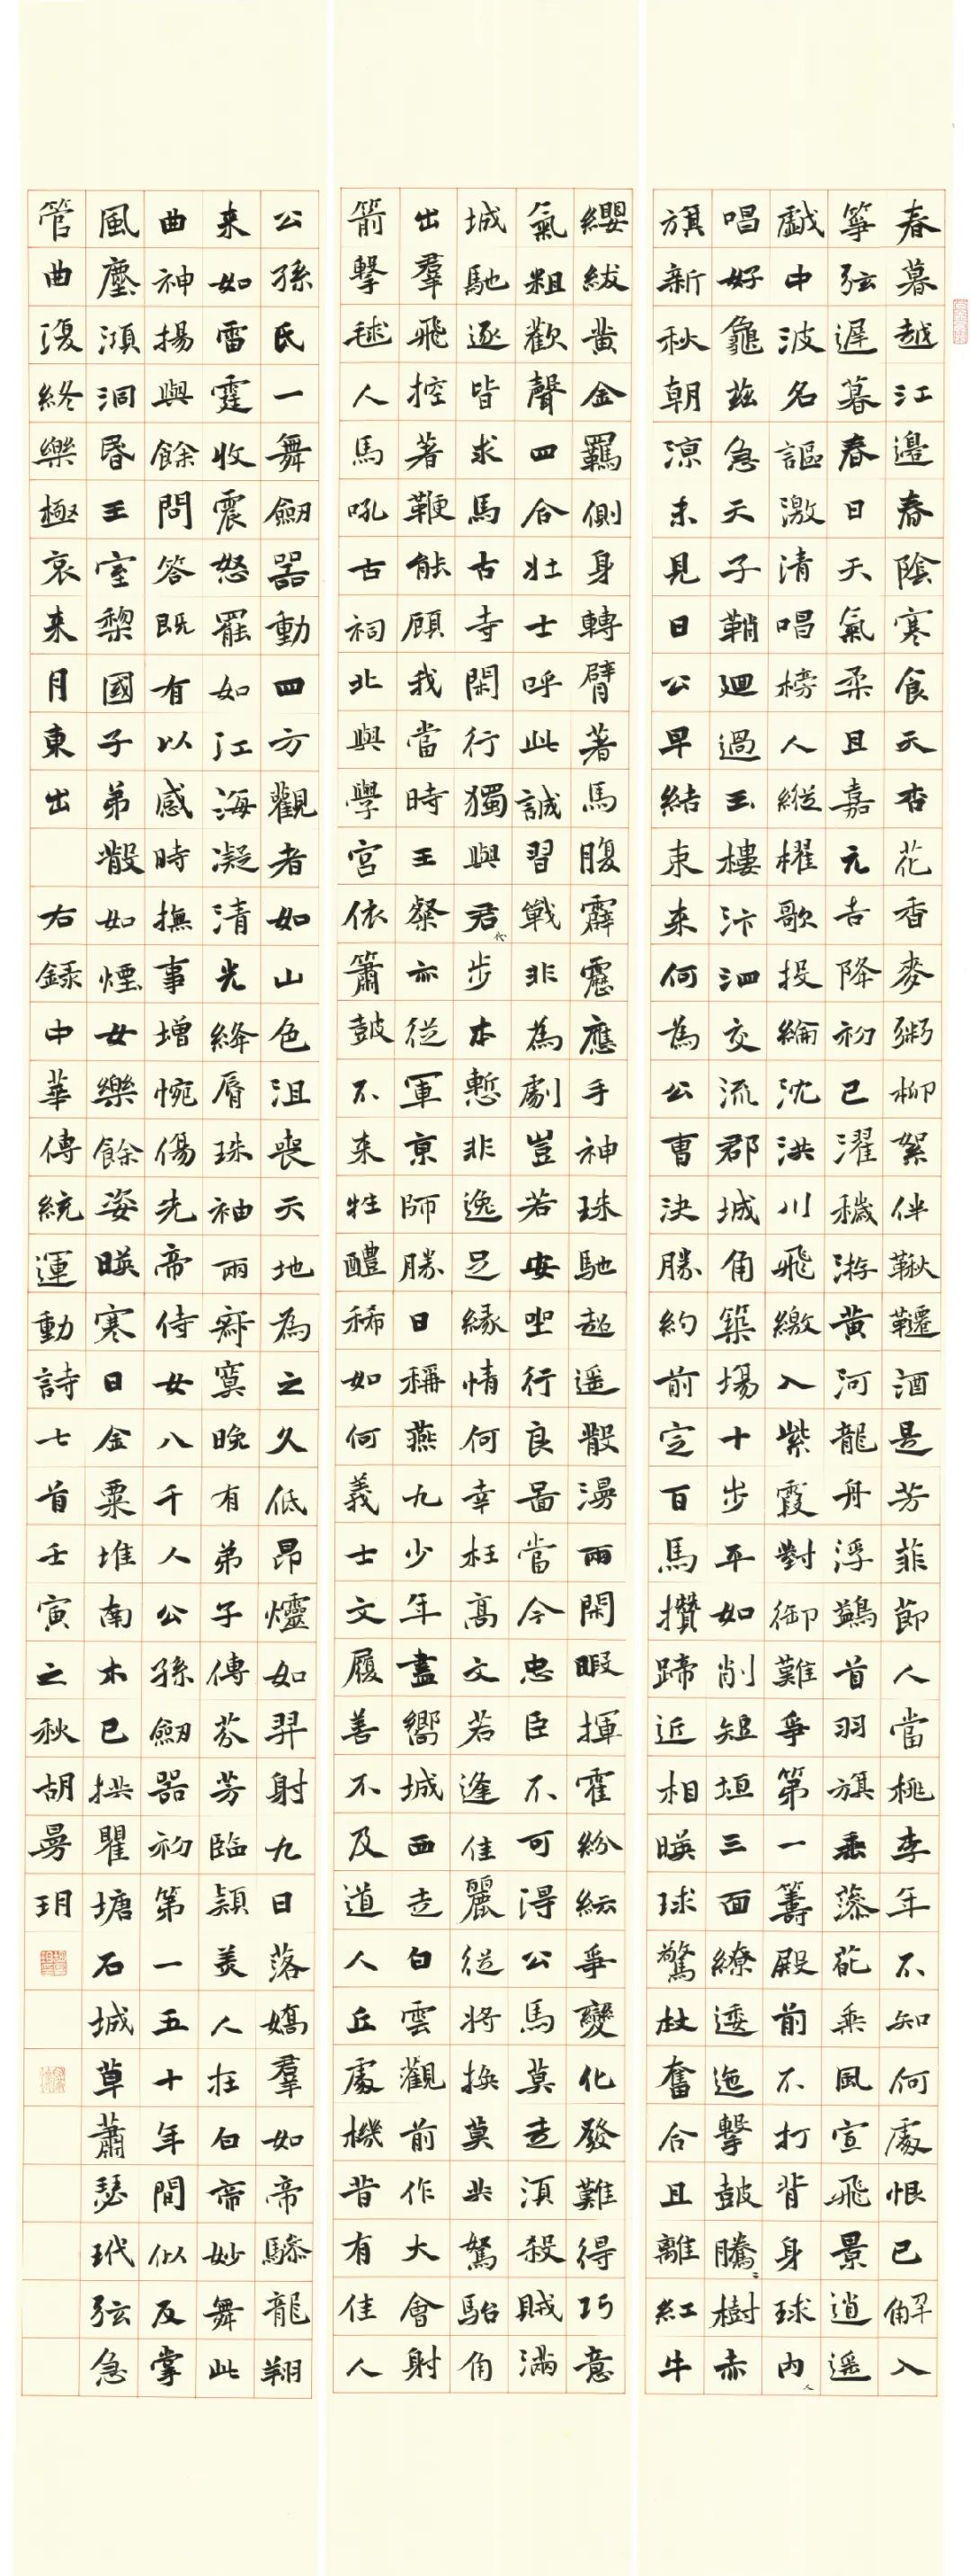 春暮越江邊春陰寒食天杏花香麥粥柳絮伴鞦韆酒是芳菲節人當桃李年不知何處恨已解入
箏弦遲暮春日天氣柔且嘉元吉降初巳濯穢游黃河龍舟浮鷁首羽旗垂藻葩乘風宣飛景逍遙
戲中波名謳激清唱榜人縱櫂歌投綸沈洪川飛繳入紫霞對御難爭第一籌殿前不打背身球內人
唱好龜茲急天子鞘迴過玉樓汴泗交流郡城角築場十步平如削短垣三面繚逶迤擊鼓騰〻樹赤
旗新秋朝涼未見日公早結束來何為公曹決勝約前定百馬攢蹄近相映球驚杖奮合且離紅牛
纓紱黃金羈側身轉臂著馬腹霹靂應手神珠馳超遥散漫兩閑暇揮霍紛紜爭變化發難得巧意
氣粗歡聲四合壯士呼此誠習戰非為劇豈若安坐行良圖當今忠臣不可得公馬莫走須殺賊滿
城馳逐皆求馬古寺閑行獨與君代步本慙非逸足緣情何幸枉高文若逢佳麗從將換莫共駑駘角
出羣飛控著鞭能顧我當時王粲亦從軍京師勝日稱燕九少年盡嚮城西走白雲觀前作大會射
箭擊毬人馬吼古祠北與學宮依簫鼓不來牲醴稀如何義士文履善不及道人丘處機昔有佳人
公孫氏一舞劒器動四方觀者如山色沮喪天地為之久低昂㸌如羿射九日落嬌羣如帝驂龍翔
來如雷霆收震怒罷如江海凝清光絳脣珠袖兩寂寞晚有弟子傳芬芳臨潁美人在白帝妙舞此
曲神揚與餘問答既有以感時撫事增惋傷先帝侍女八千人公孫劒器初第一五十年間似反掌
風塵澒洞昏王室梨國子弟散如煙女樂餘姿映寒日金粟堆南木已拱瞿塘石城草蕭瑟玳弦急
管曲復終樂極哀來月東出 右録中華傳統運動詩七首壬寅之秋胡曼玥